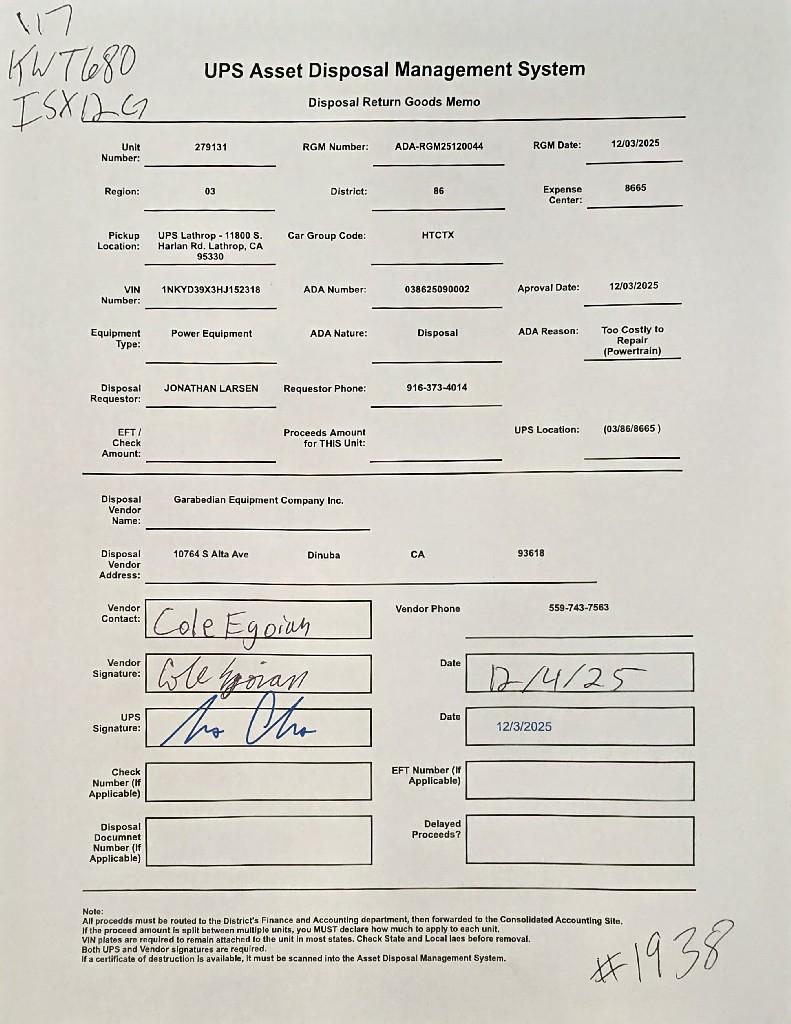 '17
KWT680
ISX12G
UPS Asset Disposal Management System
Disposal Return Goods Memo
Unit Number: 279131 RGM Number: ADA-RGM25120044 RGM Date: 12/03/2025
Region: 03 District: 86 Expense Center: 8665
Pickup Location: UPS Lathrop - 11800 S. Harlan Rd. Lathrop, CA 95330 Car Group Code: HTCTX
VIN Number: 1NKYD39X3HJ152318 ADA Number: 038625090002 Aproval Date: 12/03/2025
Equipment Type: Power Equipment ADA Nature: Disposal ADA Reason: Too Costly to Repair (Powertrain)
Disposal Requestor: JONATHAN LARSEN Requestor Phone: 916-373-4014
EFT / Check Amount: Proceeds Amount for THIS Unit: UPS Location: (03/86/8665 )
Disposal Vendor Name: Garabedian Equipment Company Inc.
Disposal Vendor Address: 10764 S Alta Ave Dinuba CA 93618
Vendor Contact: Cole Egoian Vendor Phone 559-743-7563
Vendor Signature: Cole Egoian Date 12/4/25
UPS Signature: Date 12/3/2025
Check Number (If Applicable) EFT Number (If Applicable)
Disposal Documnet Number (If Applicable) Delayed Proceeds?
Note:
All procedds must be routed to the District's Finance and Accounting department, then forwarded to the Consolidated Accounting Site.
If the proceed amount is split between multiple units, you MUST declare how much to apply to each unit.
VIN plates are required to remain attached to the unit in most states. Check State and Local laes before removal.
Both UPS and Vendor signatures are required.
If a certificate of destruction is available, it must be scanned into the Asset Disposal Management System.
#1938